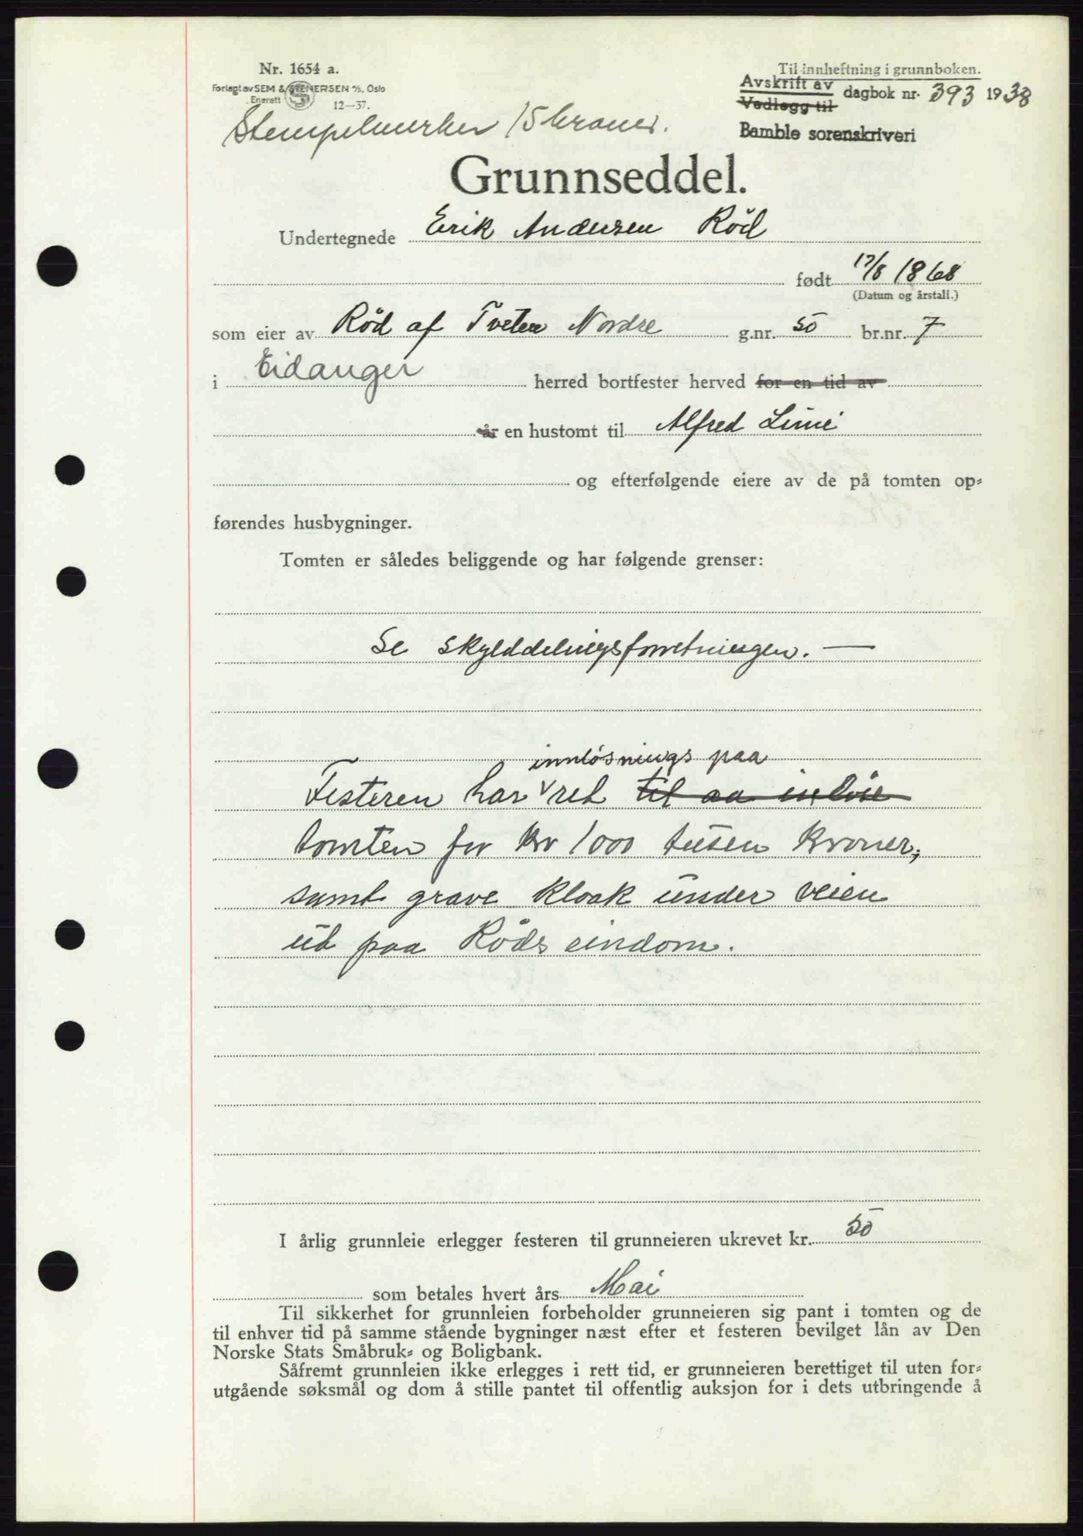 Nr. 1654 a.
Forlagt av SEM & STENERSEN A/S, Oslo
Enerett 12—37.
Til innheftning i grunnboken.
Avskrift av
Vedlegg til
dagbok nr. 393 1938
Bamble sorenskriveri
Stempelmerker 15 kroner.
Grunnseddel.
Undertegnede Erik Andersen Rød
født 17/8 1868
(Datum og årstall.)
som eier av Rød af Tveten Nordre g.nr. 50 br.nr. 7
i Eidanger herred bortfester herved for en tid av
år en hustomt til Alfred
og efterfølgende eiere av de på tomten op-
førendes husbygninger.
Tomten er således beliggende og har følgende grenser:
Se skylddelingsforretningen. —
innløsnings paa
Festeren har ret til aa inløse
tomten for kr 1000 tusen kroner,
samt grave kloak under veien
ud paa Røds eindom.
I årlig grunnleie erlegger festeren til grunneieren ukrevet kr. 50
som betales hvert års Mai
Til sikkerhet for grunnleien forbeholder grunneieren sig pant i tomten og de
til enhver tid på samme stående bygninger næst efter et festeren bevilget lån av Den
Norske Stats Småbruk- og Boligbank.
Såfremt grunnleien ikke erlegges i rett tid, er grunneieren berettiget til uten for-
utgående søksmål og dom å stille pantet til offentlig auksjon for i dets utbringende å